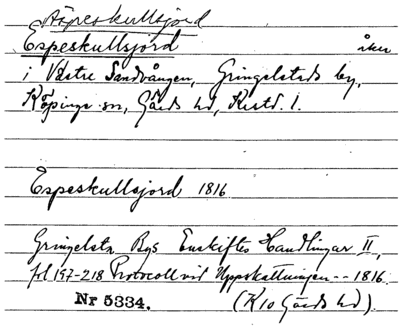 Äspeskullsjord
Espeskullsjord åker
i Västre Sandvången, Gringelstads by,
Köpinge sn, Gärds hd, Kristd. l.
Espeskullsjord 1816
Gringelsta Bys Enskiftes Handlingar II,
fol 197-218 Protocoll vid Uppskattningen -- 1816.
Nr 5334. (K10 Gärds hd).